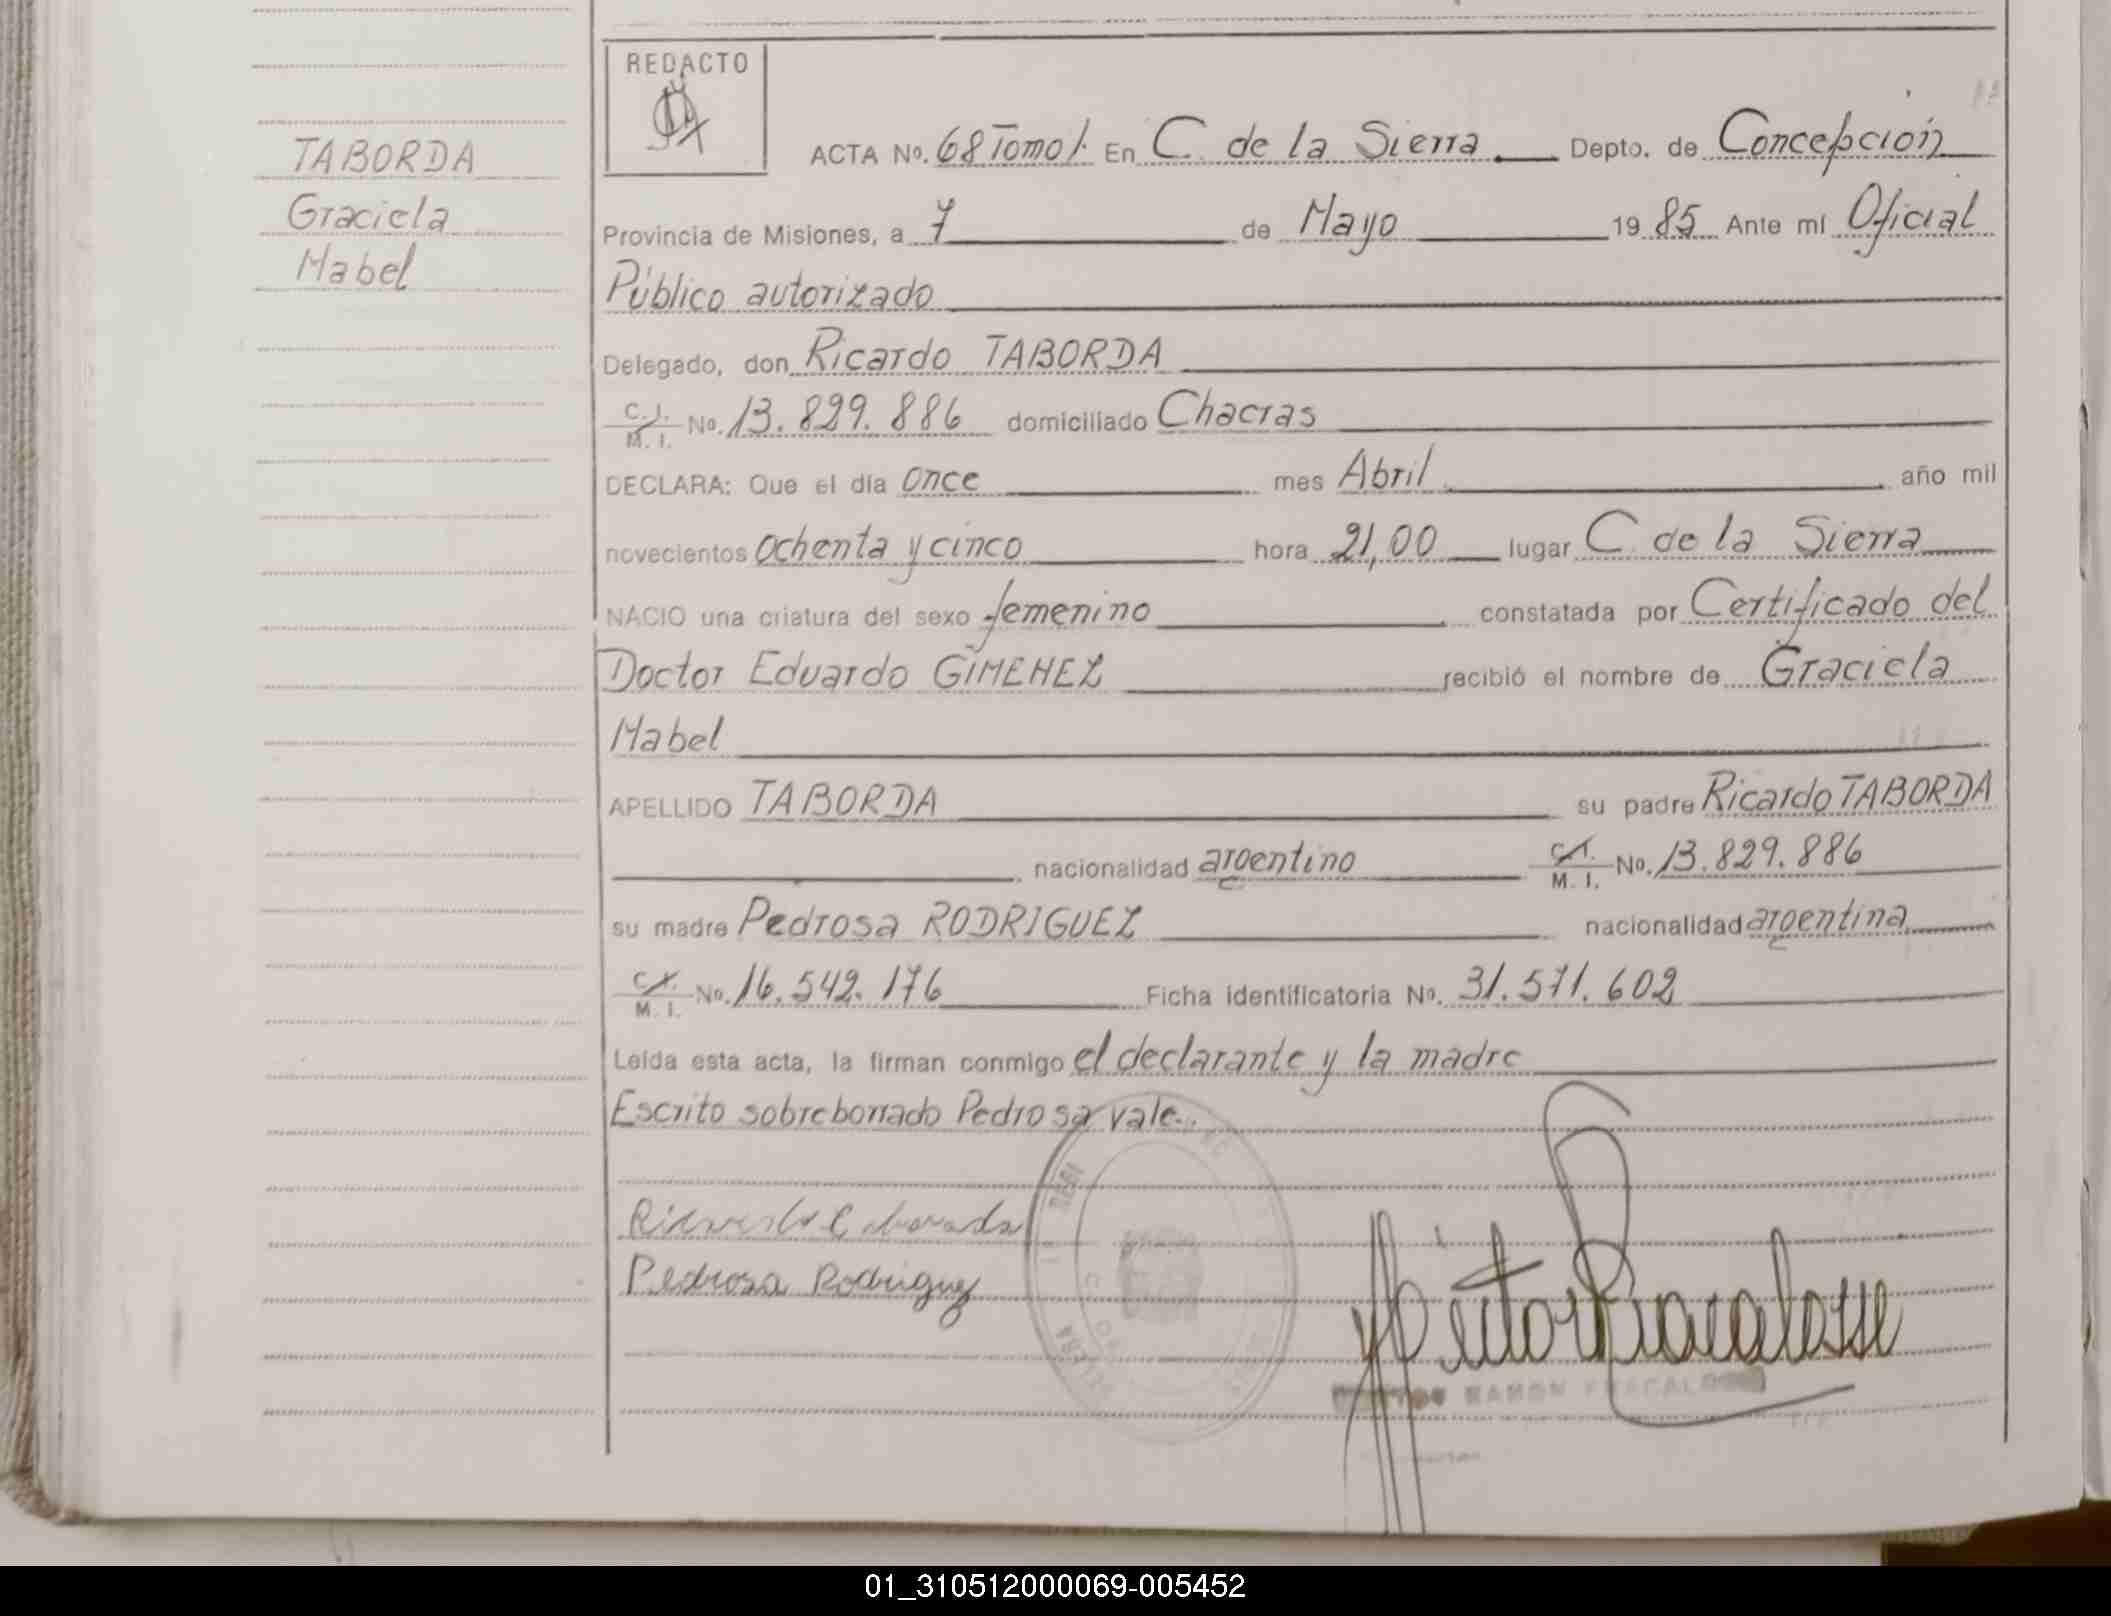 REDACTO
TABORDA
Graciela
Mabel
ACTA No. 68 Tomo I. En C. de la Sierra. Depto. de Concepción
Provincia de Misiones, a 7 de Mayo 1985 Ante mí Oficial
Público autorizado
Delegado, don Ricardo TABORDA
C. I. M. I. No. 13.829.886 domiciliado Chacras
DECLARA: Que el día once mes Abril año mil
novecientos ochenta y cinco hora 21,00 lugar C. de la Sierra
NACIO una criatura del sexo femenino constatada por Certificado del
Doctor Eduardo GIMENEZ recibió el nombre de Graciela
Mabel
APELLIDO TABORDA su padre Ricardo TABORDA
nacionalidad argentino C. I. M. I. No. 13.829.886
su madre Pedrosa RODRIGUEZ nacionalidad argentina
C. I. M. I. No. 16.542.176 Ficha identificatoria No. 31.571.602
Leída esta acta, la firman conmigo el declarante y la madre
Escrito sobreborrado Pedrosa vale.
Pedrosa Rodriguez
RAMON
01_310512000069-005452